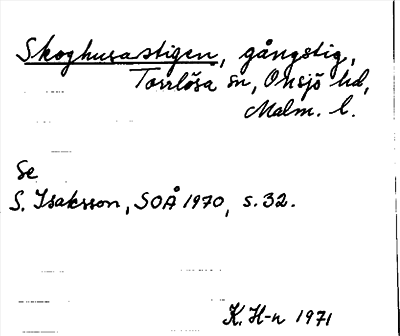 Skoghusastigen, gångstig,
Torrlösa sn, Onsjö hd,
Malm. l.
Se
S. Isaksson, SOÅ 1970, s. 32.
K. H-n 1971